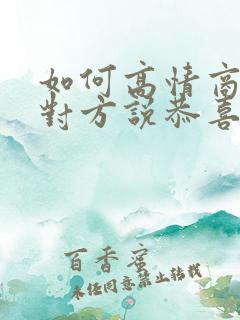 如何高情商
對方說恭喜
百香蜜
未经同意禁止转载